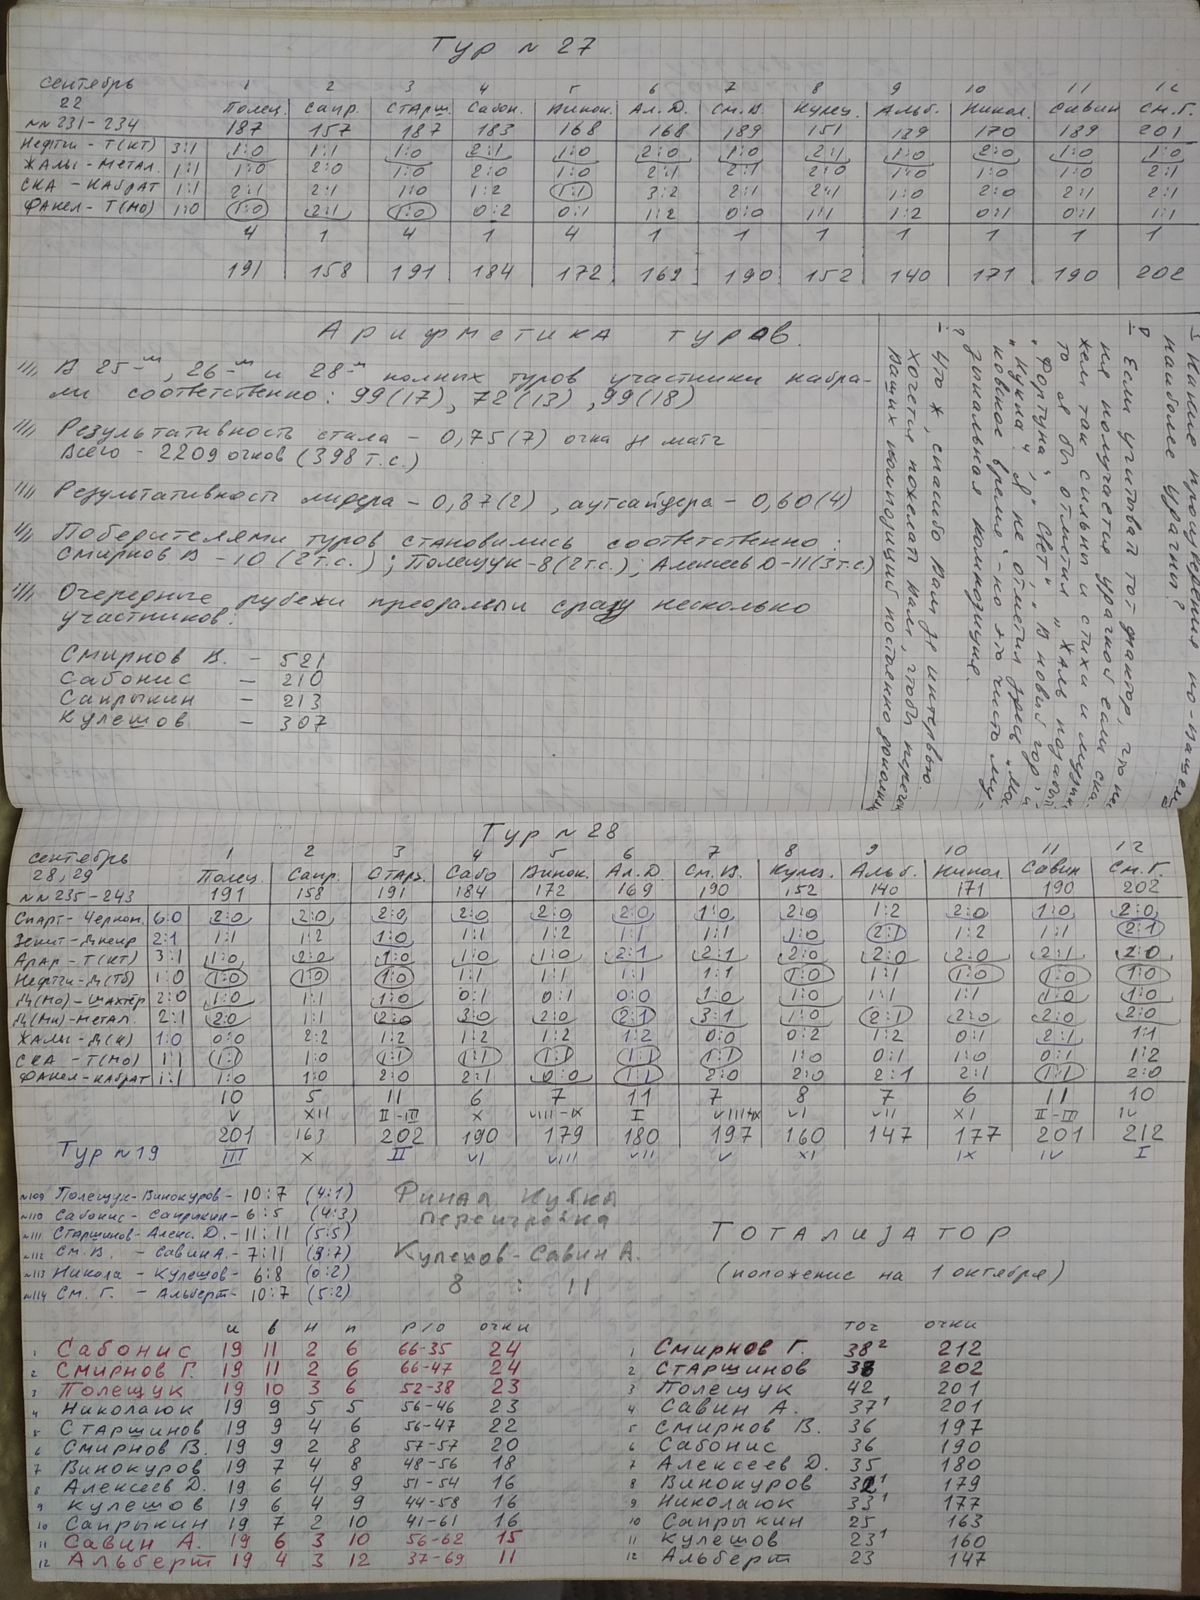 Тур № 27
сентябрь 1 2 3 4 5 6 7 8 9 10 11 12
22 Полещ. Сапр. Старш. Сабон. Винок. Ал. Д. См. В. Кулеш. Альб. Никол. Савин См. Г.
№№ 231-234 187 157 187 183 168 168 189 151 139 170 189 201
Нефтчи - Т(КТ) 3:1 1:0 1:1 1:0 2:1 1:0 2:0 1:0 2:1 1:0 2:0 1:0 1:0
Жальг - Метал. 1:1 1:0 2:0 1:0 2:0 1:0 2:1 2:1 2:0 1:0 1:0 1:0 2:1
СКА - Кайрат 1:1 2:1 2:1 1:0 1:2 1:1 3:2 2:1 2:1 1:0 2:0 2:1 2:1
Факел - Т(МО) 1:0 1:0 2:1 1:0 0:2 0:1 1:2 0:0 1:1 1:2 0:1 0:1 1:1
4 1 4 1 4 1 1 1 1 1 1 1
191 158 191 184 172 169 190 152 140 171 190 202
Арифметика туров.
В 25-м, 26-м и 28-м полных туров участники набра-
ли соответственно: 99(17), 72(13), 99(18)
Результативность стала - 0,75(7) очка за матч
Всего - 2209 очков (398 т.с.)
Результативность лидера - 0,87(2), аутсайдера - 0,60(4)
Победителями туров становились соответственно:
Смирнов В - 10 (2т.с.); Полещук - 8(2т.с.); Алексеев Д - 11(3т.с)
Очередные рубежи преодолели сразу несколько
участников:
Смирнов В. - 521
Сабонис - 210
Сапрыкин - 213
Кулешов - 307
- Какие произведения по-вашему
наиболее удачны?
- Если учитывать тот фактор, что пес-
ня получается удачной если ска-
жем так сильны и стихи и музыка,
то я бы отметил
"Фортуна", "Свет", "В новый год", и
"Кукла". Я не отметил здесь "Мос-
ковское время" - но это чисто му-
зыкальная композиция.
- Что ж, спасибо Вам за интервью.
Хочется пожелать Вам, чтобы перечень
Ваших композиций постоянно пополнял
Тур № 28
сентябрь 1 2 3 4 5 6 7 8 9 10 11 12
28, 29 Полещ. Сапр. Старш. Сабо Винок. Ал. Д См. В. Кулеш. Альб. Никол Савин См. Г.
№№ 235-243 191 158 191 184 172 169 190 152 140 171 190 202
Спарт - Черном. 6:0 2:0 2:0 2:0 2:0 2:0 2:0 1:0 2:0 1:2 2:0 1:0 2:0
Зенит - Днепр 2:1 1:1 1:2 1:0 1:1 1:2 1:1 1:1 1:0 2:1 1:2 1:1 2:1
Арар - Т(КТ) 3:1 1:0 2:0 1:0 1:0 1:0 2:1 2:1 2:0 2:0 2:0 2:1 2:0
Нефтчи - Д(Тб) 1:0 1:0 1:0 1:0 1:1 1:1 1:1 1:1 1:0 1:1 1:0 1:0 1:0
Д(Мо) - Шахтёр 2:0 1:0 1:1 1:0 0:1 0:1 0:0 1:0 1:0 1:1 1:1 1:0 1:0
Д(Мн) - Метал. 2:1 2:0 1:1 2:0 3:0 2:0 2:1 3:1 1:0 2:1 2:0 2:0 2:0
Жальг - Д(К) 1:0 0:0 2:2 1:2 1:2 1:2 1:2 0:0 0:2 1:2 0:1 2:1 1:1
СКА - Т(МО) 1:1 1:1 1:0 1:1 1:1 1:1 1:1 1:1 1:0 0:1 1:0 0:1 1:2
Факел - Кайрат 1:1 1:0 1:0 2:0 2:1 0:0 1:1 2:0 2:0 2:1 2:1 1:1 2:0
10 5 11 6 7 11 7 8 7 6 11 10
V XII II-III X VIII-IX I VIII-IX VI VII XI II-III IV
201 163 202 190 179 180 197 160 147 177 201 212
Тур № 19 III X II VI VIII VII V XI IX IV I
№109 Полещук - Винокуров - 10:7 (4:1)
№110 Сабонис - Сапрыкин - 6:5 (4:3)
№111 Старшинов - Алекс. Д. - 11:11 (5:5)
№112 См. В. - Савин А. - 7:11 (9:7)
№113 Никола - Кулешов - 6:8 (0:2)
№114 См. Г. - Альберт - 10:7 (5:2)
Финал Кубка
переигровка
Кулешов - Савин А.
8 : 11
Тотализатор
(положение на 1 октября)
и в н п р/о очки
1 Сабонис 19 11 2 6 66-35 24
2 Смирнов Г. 19 11 2 6 66-47 24
3 Полещук 19 10 3 6 52-38 23
4 Николаюк 19 9 5 5 56-46 23
5 Старшинов 19 9 4 6 56-47 22
6 Смирнов В. 19 9 2 8 57-57 20
7 Винокуров 19 7 4 8 48-56 18
8 Алексеев Д. 19 6 4 9 51-54 16
9 Кулешов 19 6 4 9 44-58 16
10 Сапрыкин 19 7 2 10 41-61 16
11 Савин А. 19 6 3 10 56-62 15
12 Альберт 19 4 3 12 37-69 11
точ очки
1 Смирнов Г. 38² 212
2 Старшинов 38 202
3 Полещук 42 201
4 Савин А. 37¹ 201
5 Смирнов В. 36 197
6 Сабонис 36 190
7 Алексеев Д. 35 180
8 Винокуров 32¹ 179
9 Николаюк 33¹ 177
10 Сапрыкин 25 163
11 Кулешов 23¹ 160
12 Альберт 23 147